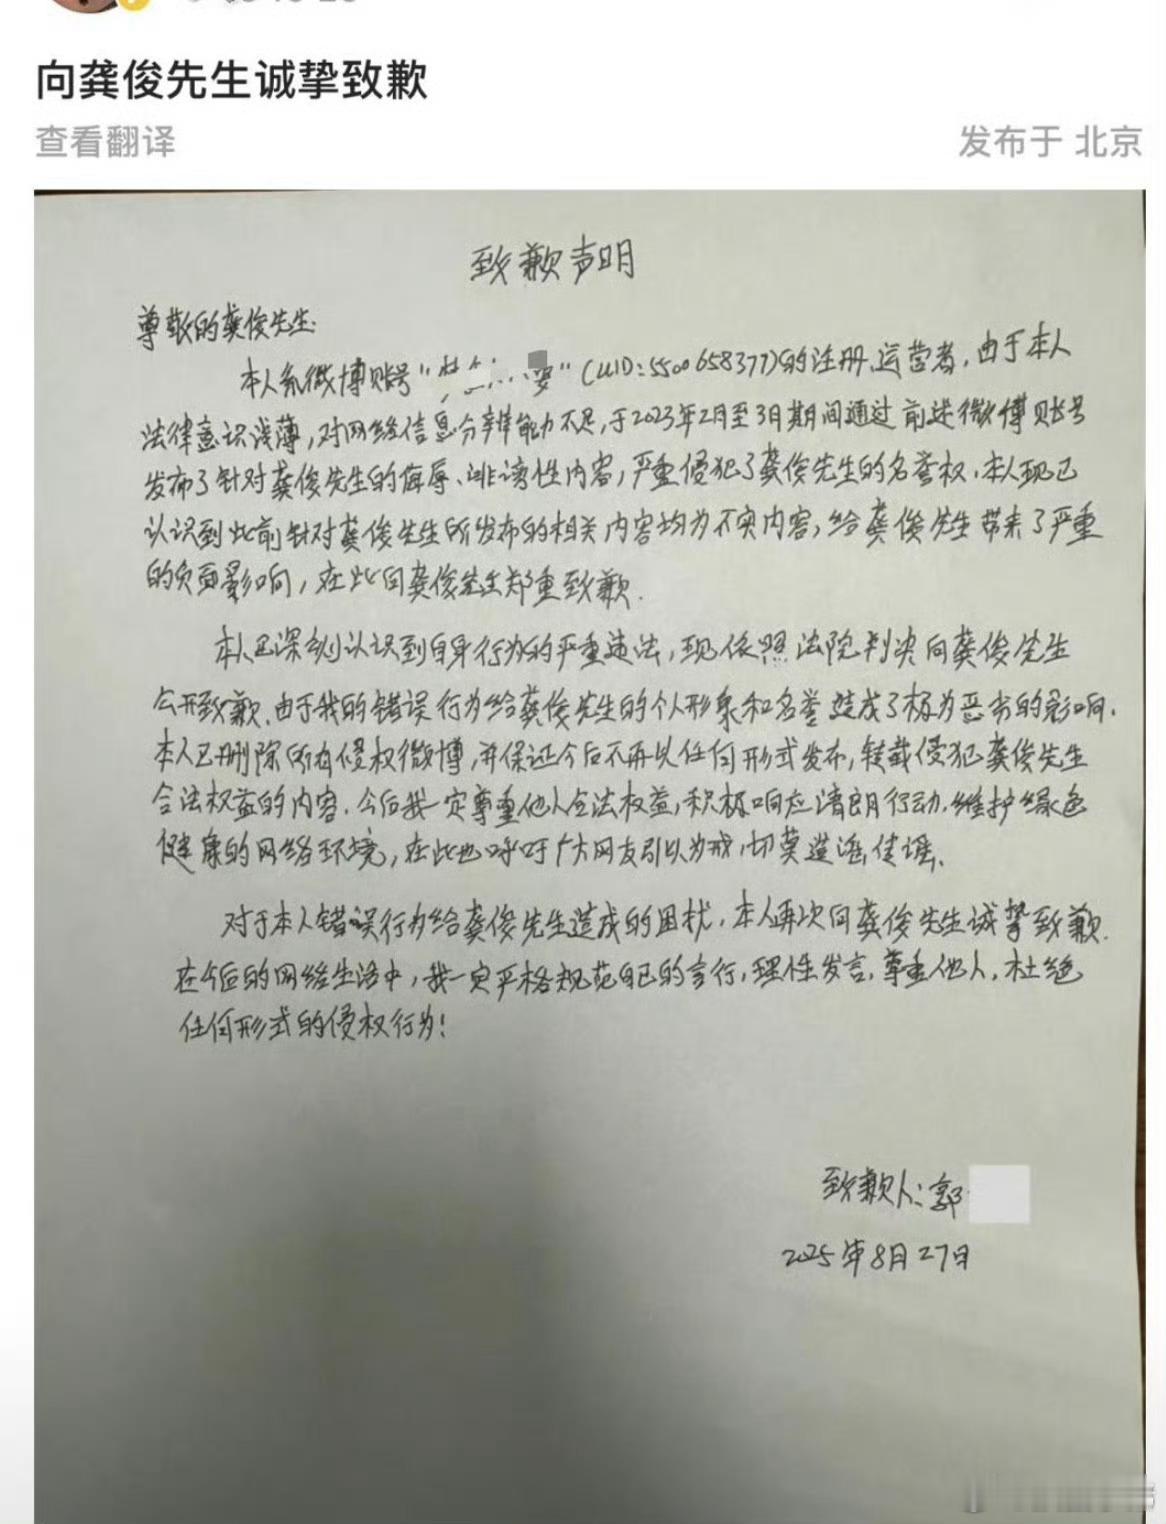 向龚俊先生诚挚致歉
查看翻译
发布于 北京
致歉声明
尊敬的龚俊先生:
本人系微博账号“ ”(UID:5500658377)的注册、运营者,由于本人
法律意识浅薄,对网络信息分辨能力不足,于2023年2月至3月期间通过前述微博账号
发布了针对龚俊先生的侮辱、诽谤性内容,严重侵犯了龚俊先生的名誉权,本人现已
认识到此前针对龚俊先生所发布的相关内容均为不实内容,给龚俊先生带来了严重
的负面影响,在此向龚俊先生郑重致歉.
本人已深刻认识到自身行为的严重违法,现依照法院判决向龚俊先生
公开致歉.由于我的错误行为给龚俊先生的个人形象和名誉造成了极为恶劣的影响.
本人已删除所有侵权微博,并保证今后不再以任何形式发布,转载侵犯龚俊先生
合法权益的内容.今后我一定尊重他人合法权益,积极响应清朗行动.维护绿色
健康的网络环境,在此也呼吁广大网友引以为戒,切莫造谣传谣.
对于本人错误行为给龚俊先生造成的困扰,本人再次向龚俊先生诚挚致歉.
在今后的网络生活中,我一定严格规范自己的言行,理性发言,尊重他人,杜绝
任何形式的侵权行为!
致歉人:郭
2025年8月27日